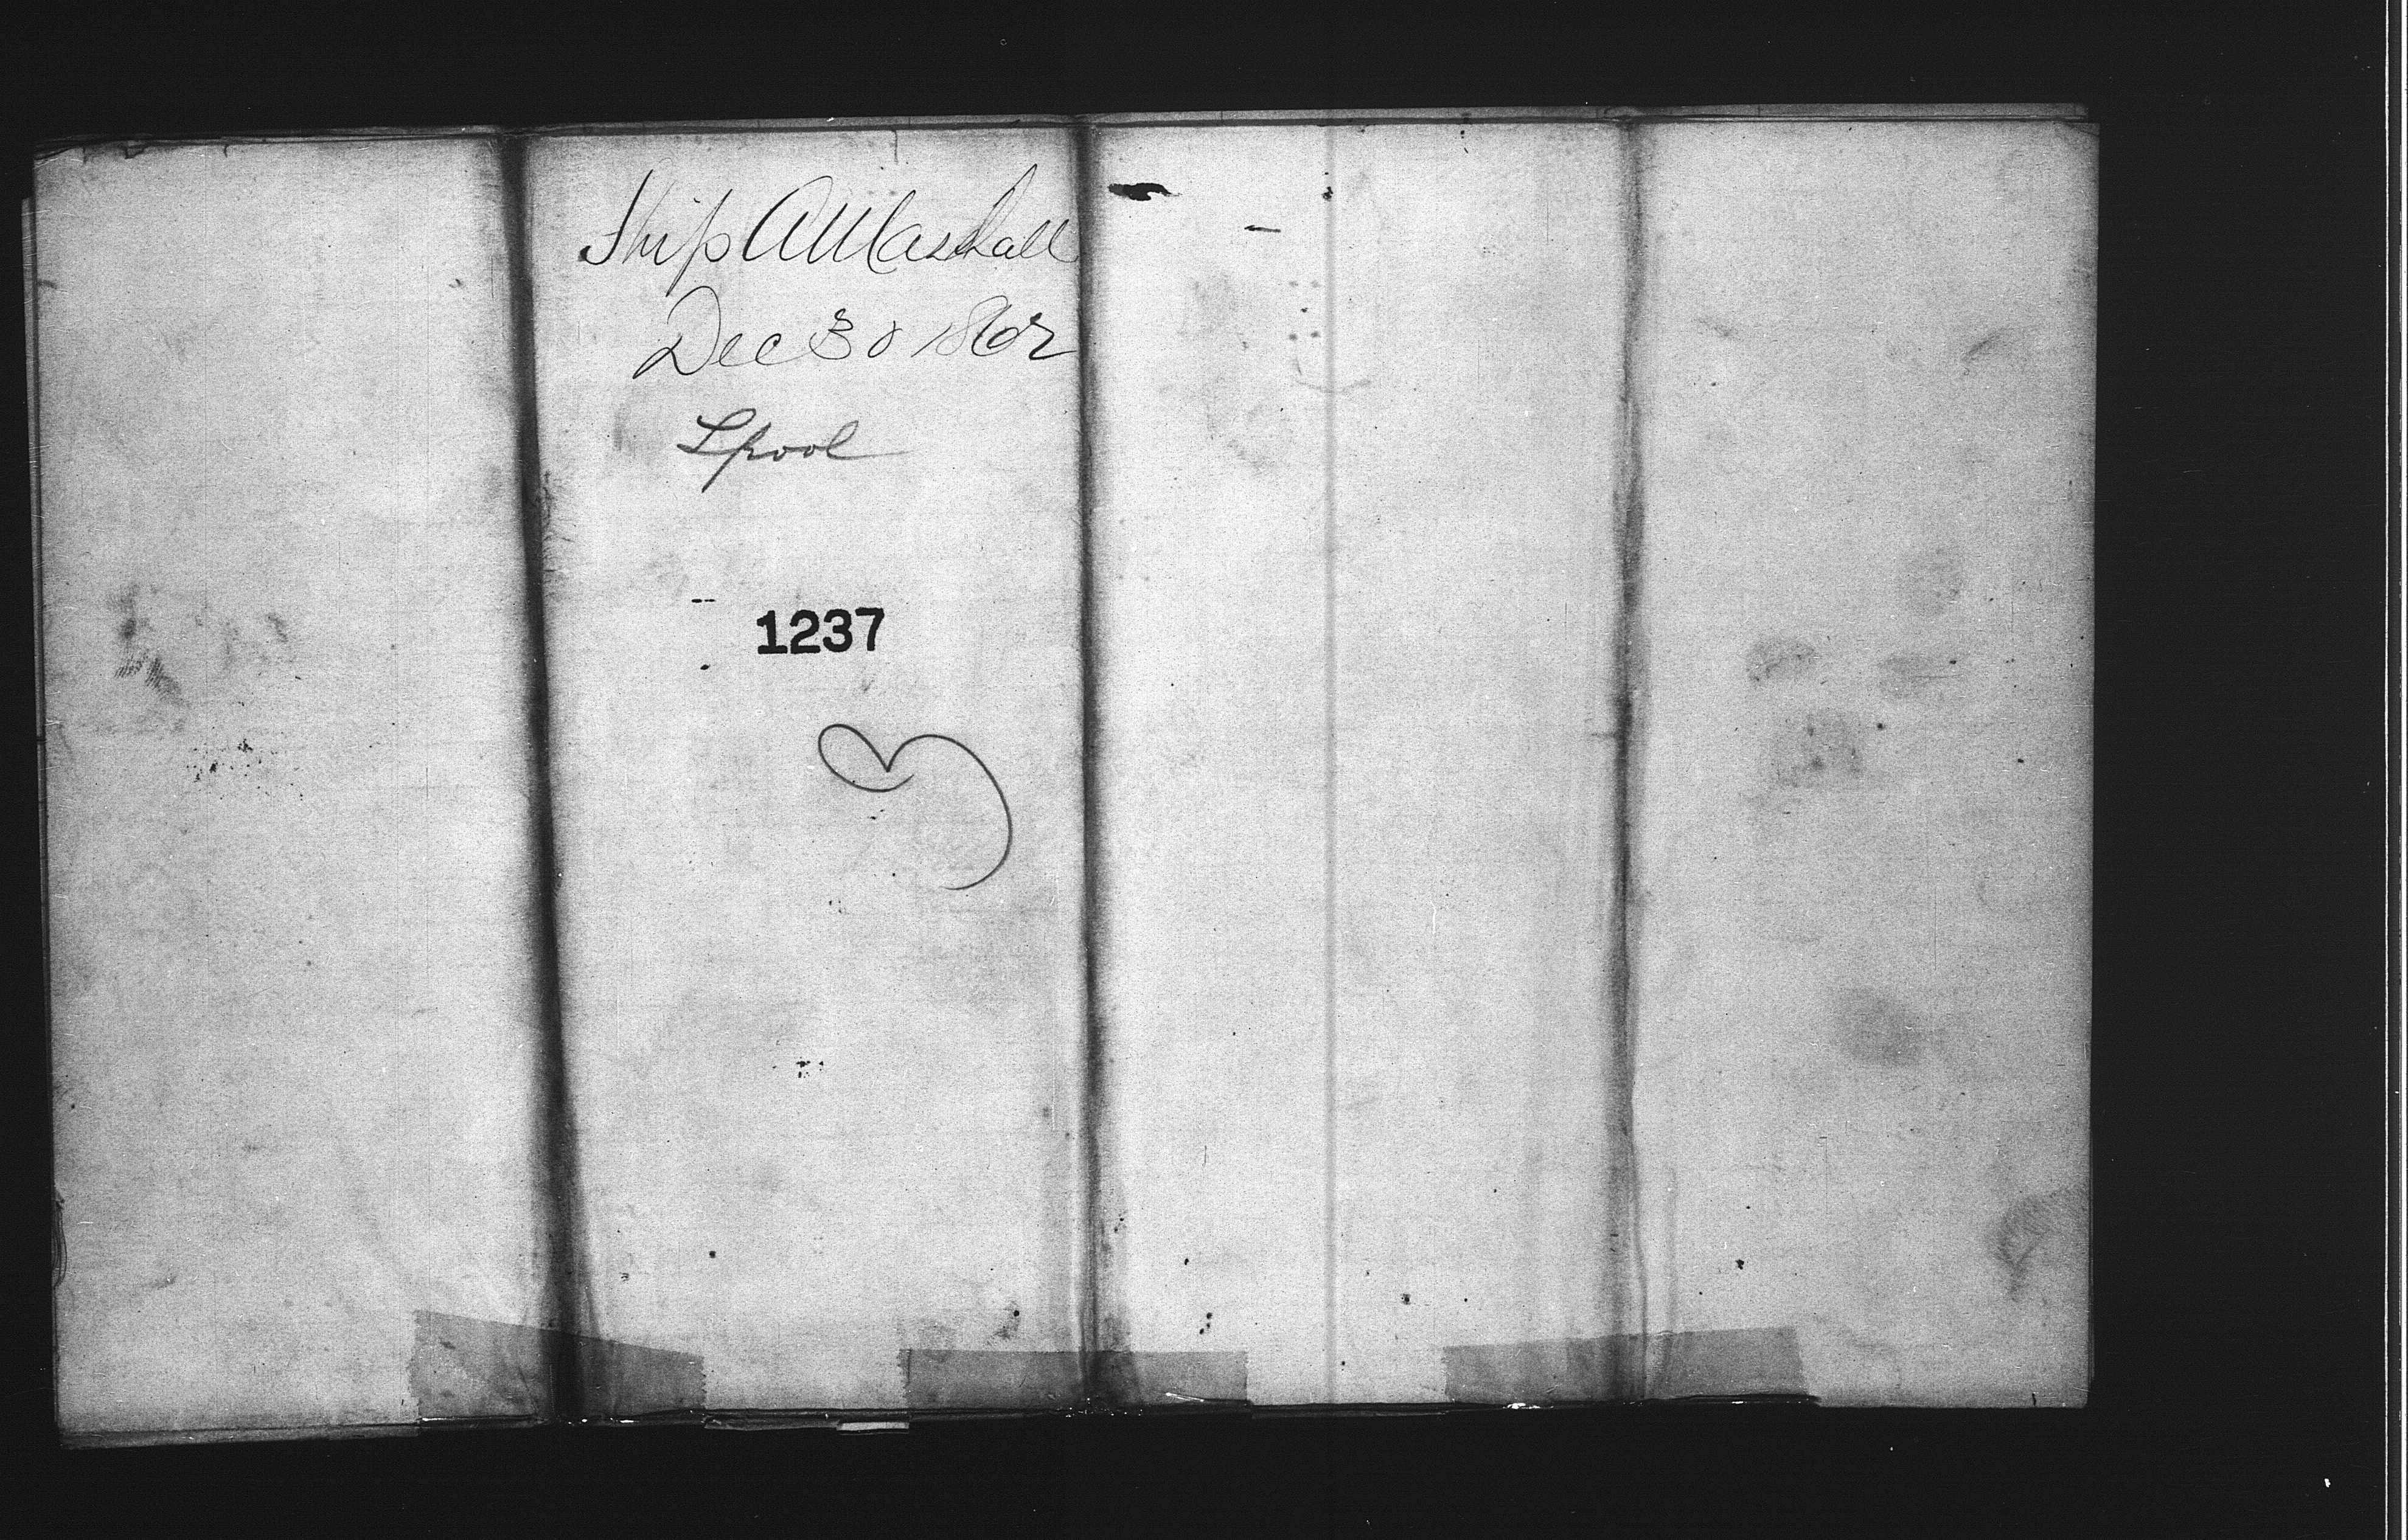 Ship A Marshall
Dec 30 1862
Lpool
1237